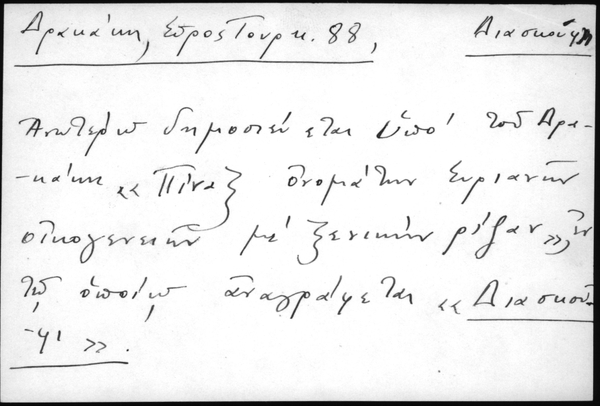 Δρακάκη, Σῦρος Τουρκ. 88, Διασκούφη
Ἀνωτέρω δημοσιεύεται ὑπὸ τοῦ Δρα-
-κάκη «Πίναξ ὀνομάτων Συριανῶν
οἰκογενειῶν μὲ ξενικὴν ρίζαν», ἐν
τῷ ὁποίῳ ἀναγράφεται «Διασκού-
-φι».